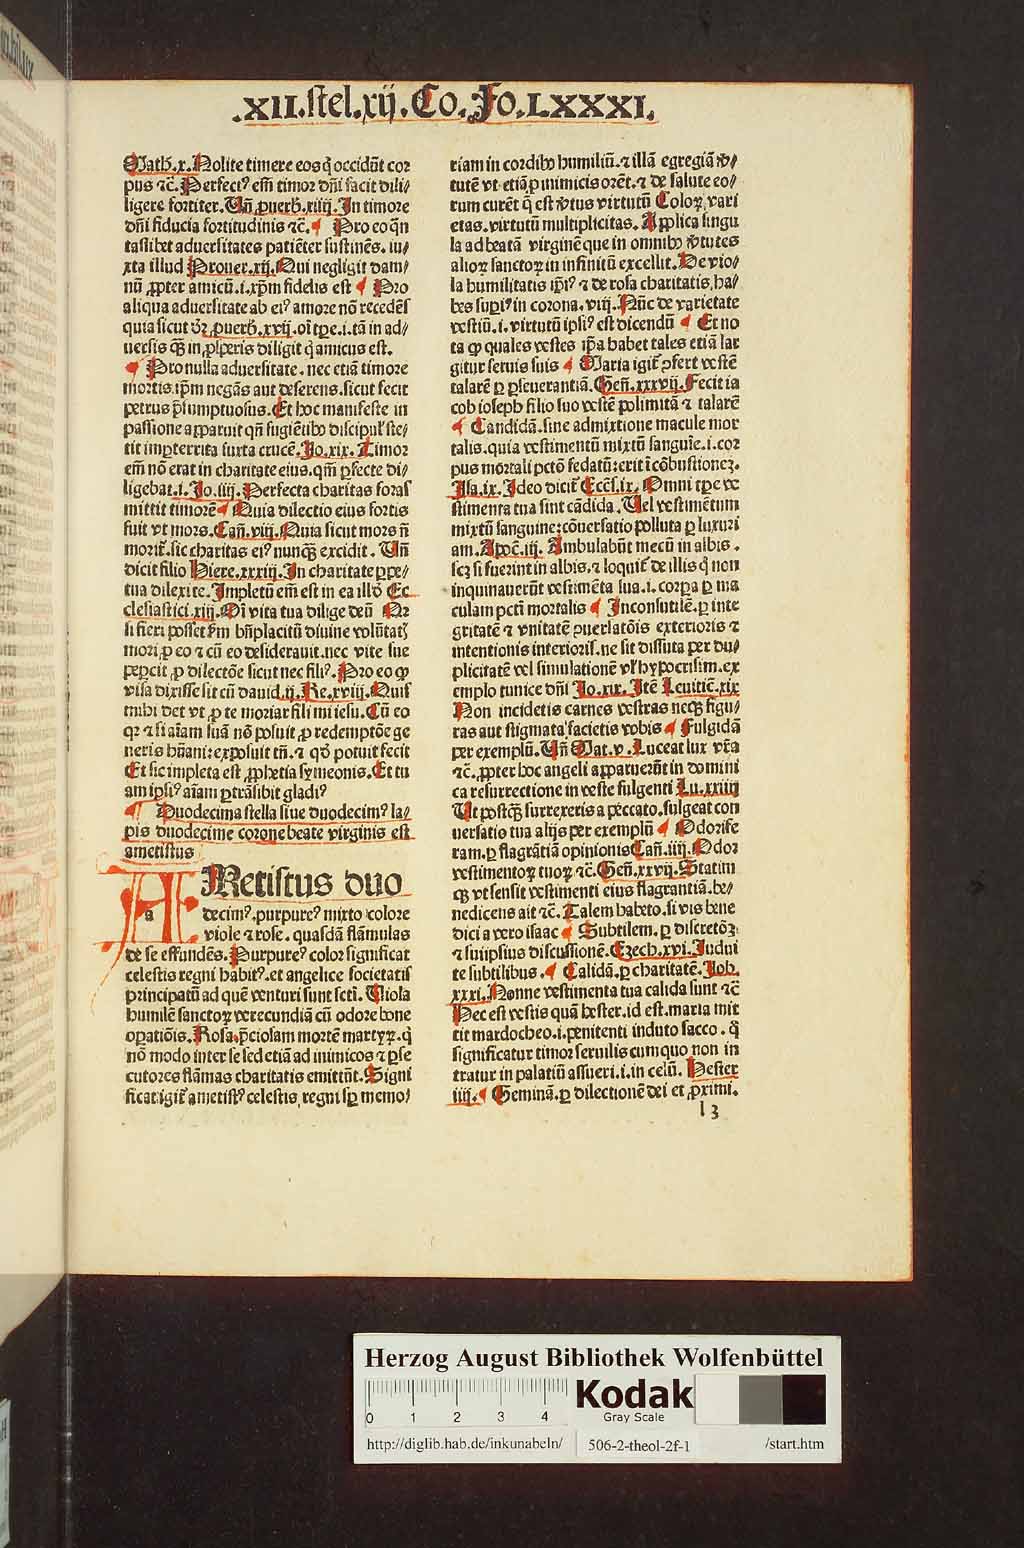 .XII.stel.xij.Co.Jo.LXXXI.
Math.x.Nolite timere eos q̃ occidũt cor
pus ⁊c̃. Perfect⁹ em̃ timor dñi facit dili/
ligere fortiter. Uñ ꝓuerb.xiiij.In timore
dñi fiducia fortitudinis ⁊c̃. Pro eo qñ
taslibet aduersitates patiẽter sustinẽs. iu/
xta illud Prouer.xij.Qui negligit dam/
nũ ꝓpter amicũ.i.xp̃m fidelis est Pro
aliqua aduersitate ab ei⁹ amore nõ recedẽs
quia sicut dr̃ ꝓuerb.xvij.oĩ tp̃e.i.tã in ad/
uersis qᷓꝫ in ꝓsperis diligit q̃ amicus est.
Pro nulla aduersitate. nec etiã timore
mortis.ip̃m negãs aut deserens.sicut fecit
petrus p̃sumptuosus.Et hoc manifeste in
passione apparuit qñ fugiẽtibꝰ discipul' ste/
tit imꝑterrita iuxta crucẽ.Jo.xix.Timor
em̃ nõ erat in charitate eius.qm̃ ꝑfecte di/
ligebat.i.Jo.iiij.Perfecta charitas foras
mittit timorẽ Quia dilectio eius fortis
fuit vt mors.Cañ.viij.Quia sicut mors ñ
morit᷑.sic charitas ei⁹ nunqᷓꝫ excidit. Uñ
dicit filio Hiere.xxxiij.In charitate ꝑpe/
tua dilexi te.Impletũ em̃ est in ea illď Ec
clesiastici.xiij.Oĩ vita tua dilige deũ Qr̃
si fieri posset ẜm bñplacitũ diuine volũtatꝭ
mori ꝓ eo ⁊ cũ eo desiderauit.nec vite sue
peꝑcit ꝓ dilectõe sicut nec fili⁹.Pro eo ꝙ
visa dixisse sit cũ dauid.ij.Re.xviij.Quis
mihi det vt ꝓ te moriar fili mi iesu.Cũ eo
qꝛ ⁊ si aĩam suã nõ posuit ꝓ redemptõe ge
neris hũani: exposuit tñ.⁊ qď potuit fecit
Et sic impleta est ꝓphetia symeonis.Et tu
am ipsi⁹ aĩam ꝑtrãsibit gladi⁹
Duodecima stella siue duodecim⁹ la/
pis duodecime corone beate virginis est
ametistus
a
AMetistus duo
decim⁹.purpure⁹ mixto colore
viole ⁊ rose. quasdã flãmulas
de se effundẽs.Purpure⁹ color significat
celestis regni habit⁹.et angelice societatis
principatũ ad quẽ venturi sunt scti.Uiola
humilẽ sanctoꝝ verecundiã cũ odore bone
oꝑatiõis.Rosa p̃ciosam mortẽ martyꝝ.q̃
nõ modo inter se sed etiã ad inimicos ⁊ ꝑse
cutores flãmas charitatis emittũt.Signi
ficat igit᷑ ametist⁹ celestis regni sp̃ memo/
riam in cordibꝰ humiliũ.⁊ illã egregiã ꝟ/
tutẽ vt etiã ꝓ inimicis orẽt.⁊ de salute eo/
rum curẽt q̃ est ꝟtus virtutũ Coloꝝ vari
etas.virtutũ multiplicitas. Applica singu
la ad beatã virginẽ que in omnibꝰ ꝟtutes
alioꝝ sanctoꝝ in infinitũ excellit. De vio/
la humilitatis ip̃i⁹ ⁊ de rosa charitatis.ha/
bes supi⁹ in corona.viij.Nũc de varietate
vestiũ.i.virtutũ ipsi⁹ est dicendũ Et no
ta ꝙ quales vestes ip̃a habet tales etiã lar
gitur seruis suis Maria igit᷑ ꝓfert vestẽ
talarẽ ꝑ ꝑseuerantiã.Geñ.xxxvij.Fecit ia
cob ioseph filio suo vestẽ polimitã ⁊ talarẽ
Candidã.sine admixtione macule mor
talis.quia vestimentũ mixtũ sanguĩe.i.cor
pus mortali pctõ fedatũ:erit ĩ cõbustioneꝫ.
Isa.ix.Ideo dicit᷑ Ecc̃s.ix.Omni tp̃e ve
stimenta tua sint cãdida.Uel vestimẽtum
mixtũ sanguine:cõuersatio polluta ꝑ luxuri
am.Apoc̃.iij. Ambulabũt mecũ in albis.
scꝫ si fuerint in albis.⁊ loquit᷑ de illis q̃ non
inquinauerũt vestimẽta sua.i.corpa ꝑ ma
culam pcti mortalis Inconsutilẽ.ꝑ inte
gritatẽ ⁊ vnitatẽ ꝯuersatõis exterioris ⁊
intentionis interioris.ne sit dissuta per du/
plicitatẽ vel simulationẽ vl' hypocrisim.ex
emplo tunice dñi Jo.xix. Itẽ Leuitic̃.xix
Non incidetis carnes vestras necꝫ figu/
ras aut stigmata facietis vobis Fulgidã
per exemplũ.Uñ Mat.v.Luceat lux vr̃a
⁊c̃.ꝓpter hoc angeli apparuerũt in domini
ca resurrectione in veste fulgenti Lu.xxiiij
Ut postqᷓꝫ surrexeris a peccato.fulgeat con
uersatio tua alijs per exemplũ Odorife
ram.ꝑ flagrãtiã opinionis Cañ.iiij. Odor
vestimentoꝝ tuoꝝ ⁊c̃.Geñ.xxvij.Statim
qᷓꝫ vt sensit vestimenti eius flagrantiã.be/
nedicens ait ⁊c̃. Talem habeto.si vis bene
dici a vero isaac Subtilem.ꝑ discretõꝫ
⁊ sui ipsius discussionẽ.Ezech.xvi.Indui
te subtilibus. Calidã.ꝑ charitatẽ.Job.
xxxi.Nonne vestimenta tua calida sunt ⁊c̃
Hec est vestis quã hester.id est.maria mit
tit mardocheo.i.penitenti induto sacco. q̃
significatur timor seruilis cum quo non in
tratur in palatiũ assueri.i.in celũ. Hester
iiij. Geminã.ꝑ dilectionẽ dei et ꝓximi.
l 3
Herzog August Bibliothek Wolfenbüttel
0 1 2 3 4
Kodak
Gray Scale
http://diglib.hab.de/inkunabeln/ 506-2-theol-2f-1 /start.htm